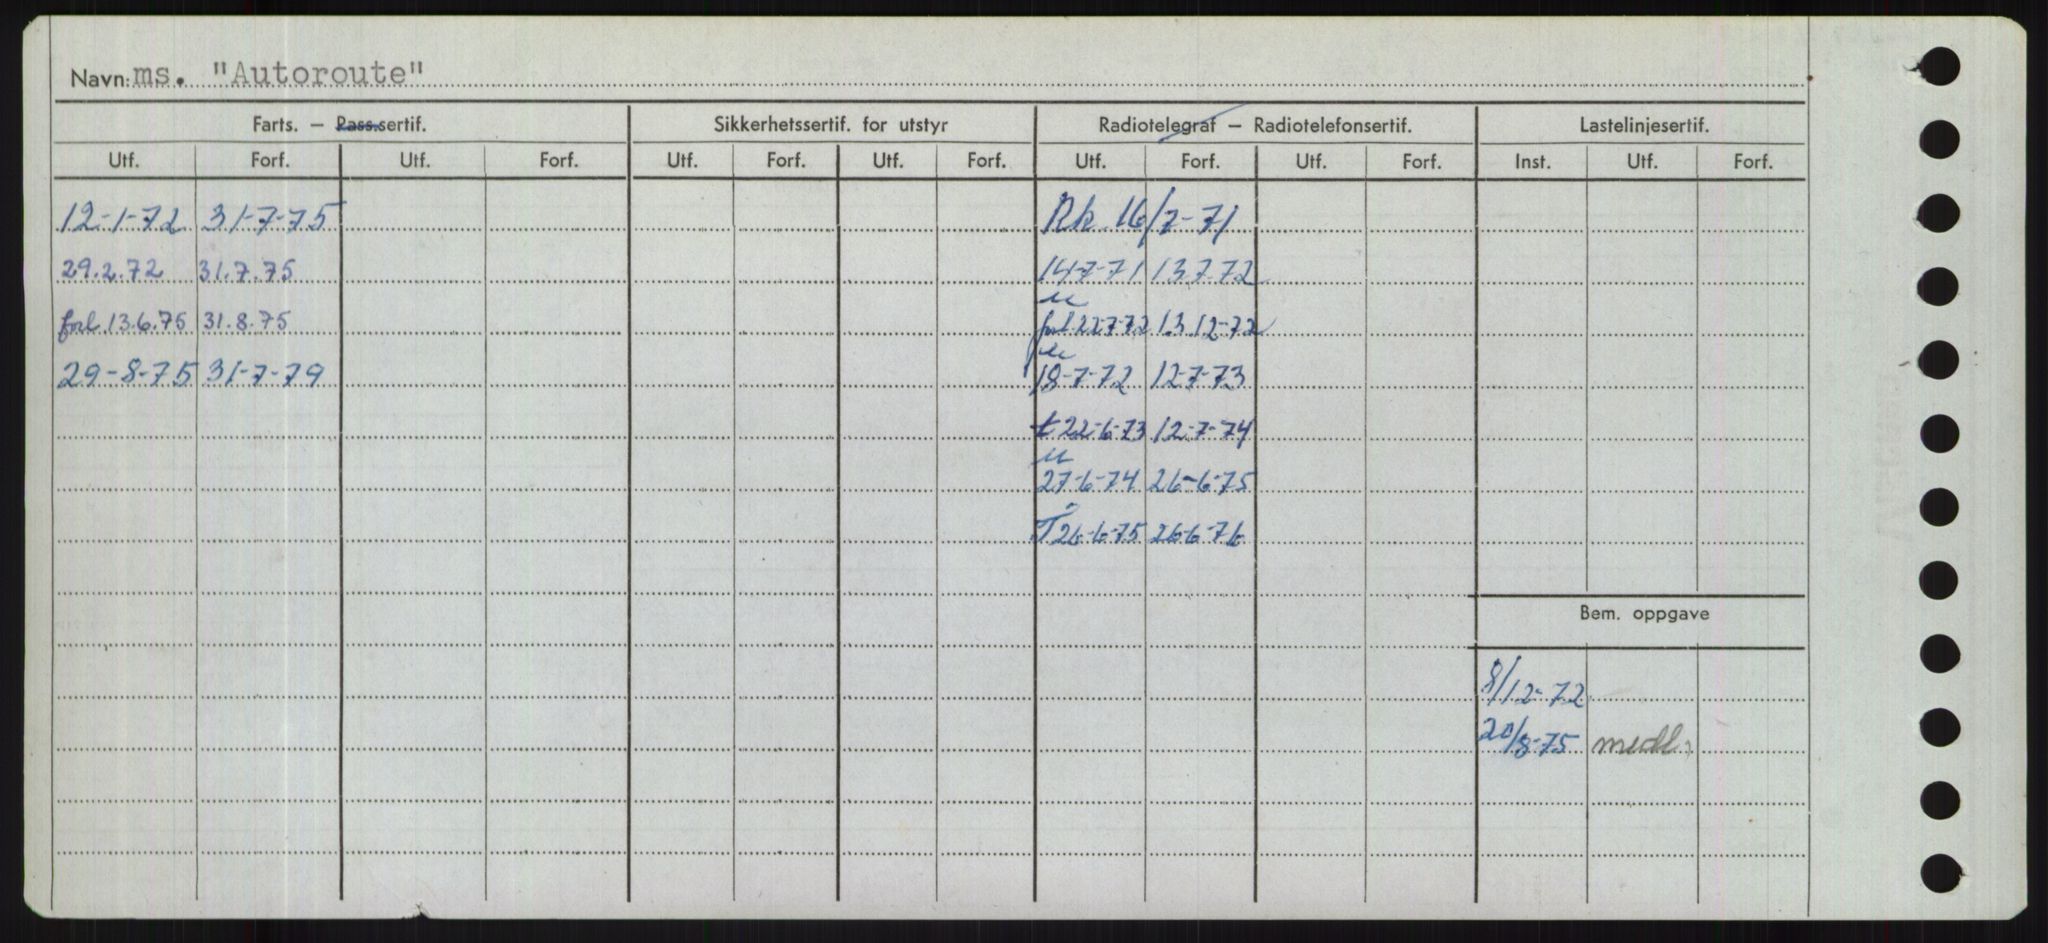 Navn: ms. "Autoroute"
Farts. — Pass.sertif. Sikkerhetssertif. for utstyr Radiotelegraf — Radiotelefonsertif. Lastelinjesertif.
Utf. Forf. Utf. Forf. Utf. Forf. Utf. Forf. Utf. Forf. Utf. Forf. Inst. Utf. Forf.
12-1-72 31-7-75 Rk. 16/7-71
29.2.72 31.7.75 14-7-71 13.7.72
forl 13.6.75 31.8.75 forl 22-7-72 13 12-72
29-8-75 31-7-79 18-7-72 12-7-73
t 22-6-73 12-7-74
27-6-74 26-6-75
T 26-6-75 26-6-76
Bem. oppgave
8/12-72
20/8-75 medl.